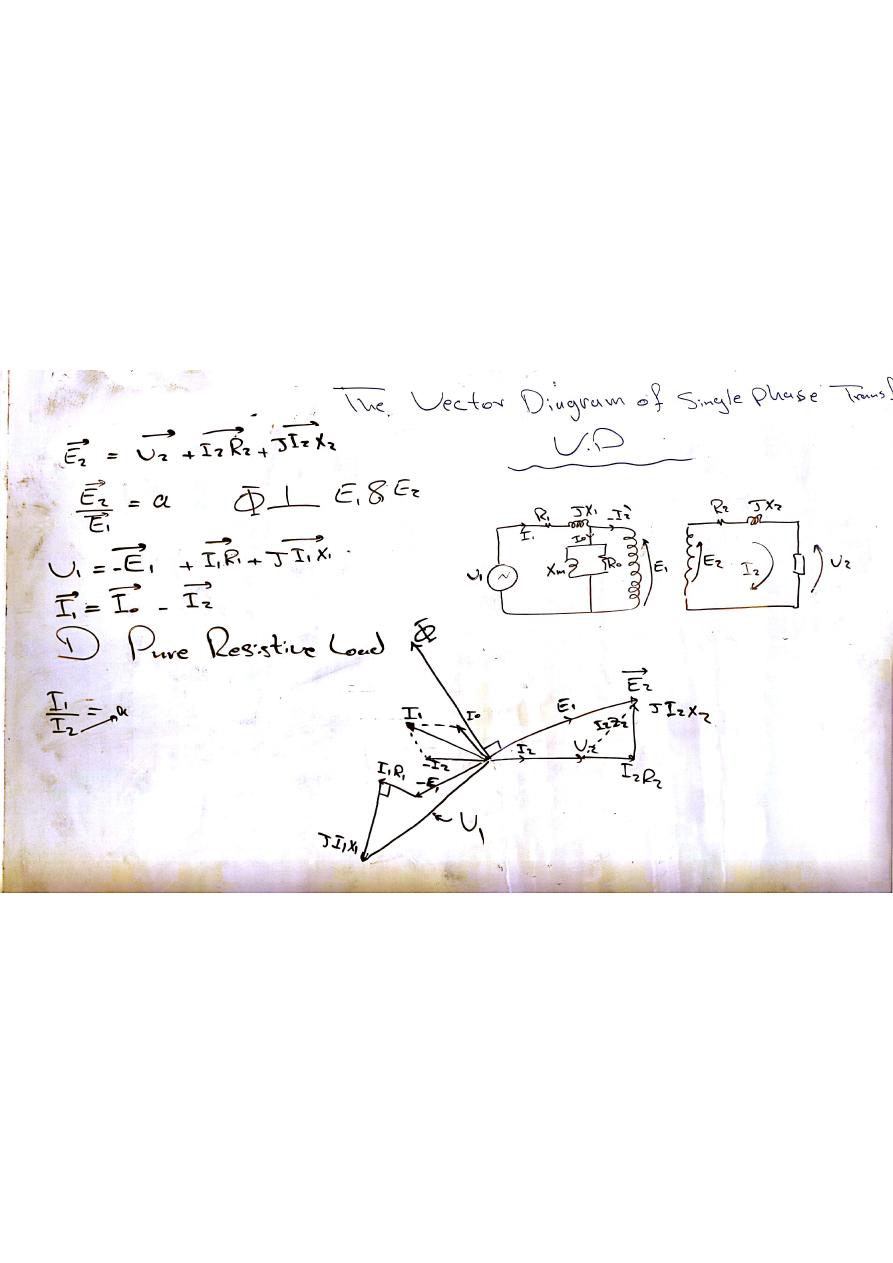 The Vector Diagram of Single Phase Transf
V.D
E₂ = U₂ + I₂R₂ + JI₂X₂
E₂/E₁ = a Φ ⊥ E₁ & E₂
U₁ = -E₁ + I₁R₁ + JI₁X₁
I₁ = I₀ - I₂
1) Pure Resistive Load
I₁/I₂ = a
R₁ JX₁ -I₂'
I₁ I₀
U₁ Xm R₀ E₁
R₂ JX₂
E₂ I₂ U₂
Φ
E₂
I₁ I₀ E₁ I₂Z₂ JI₂X₂
-I₂ I₂ U₂ I₂R₂
I₁R₁ -E₁
U₁
JI₁X₁